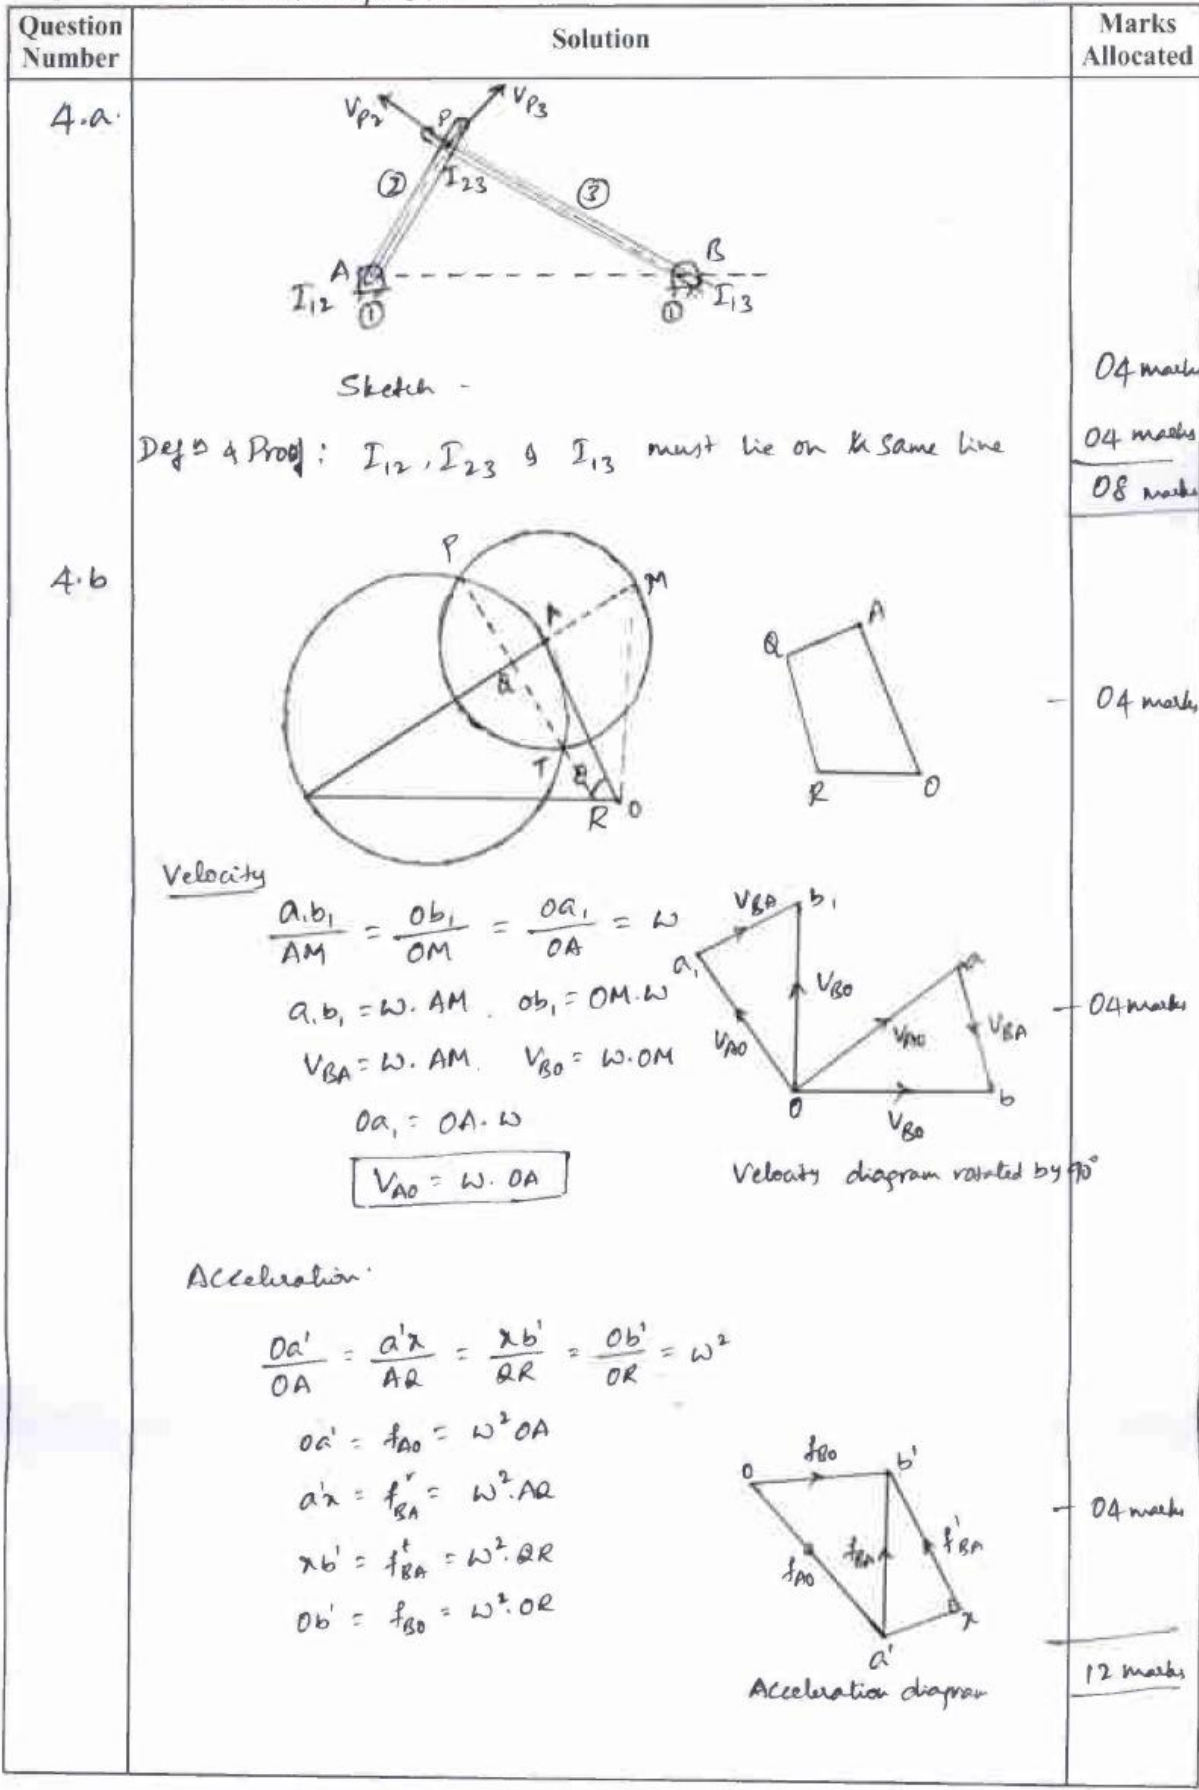 Question Number
Solution
Marks Allocated
4.a.
V_P2
P
V_P3
②
I_23
③
A
B
I_12
I_13
①
①
Sketch -
04 marks
Defn & Proof : I_12, I_23 & I_13 must lie on the same line
04 marks
08 marks
4.b
P
M
A
Q
T
B
R
O
Q
A
R
O
04 marks
Velocity
a_1b_1/AM = ob_1/OM = oa_1/OA = ω
a_1b_1 = ω. AM. ob_1 = OM. ω
V_BA = ω. AM. V_BO = ω. OM
oa_1 = OA. ω
V_AO = ω. OA
V_BA
b_1
a_1
V_BO
V_AO
a
V_AO
V_BA
O
V_BO
b
04 marks
Velocity diagram rotated by 90°
Acceleration.
oa'/OA = a'x/AQ = xb'/QR = ob'/OR = ω²
oa' = f_AO = ω² OA
a'x = f^r_BA = ω². AQ
xb' = f^t_BA = ω². QR
ob' = f_BO = ω². OR
o
f_BO
b'
f_AO
f_BA
f'_BA
x
a'
04 marks
Acceleration diagram
12 marks